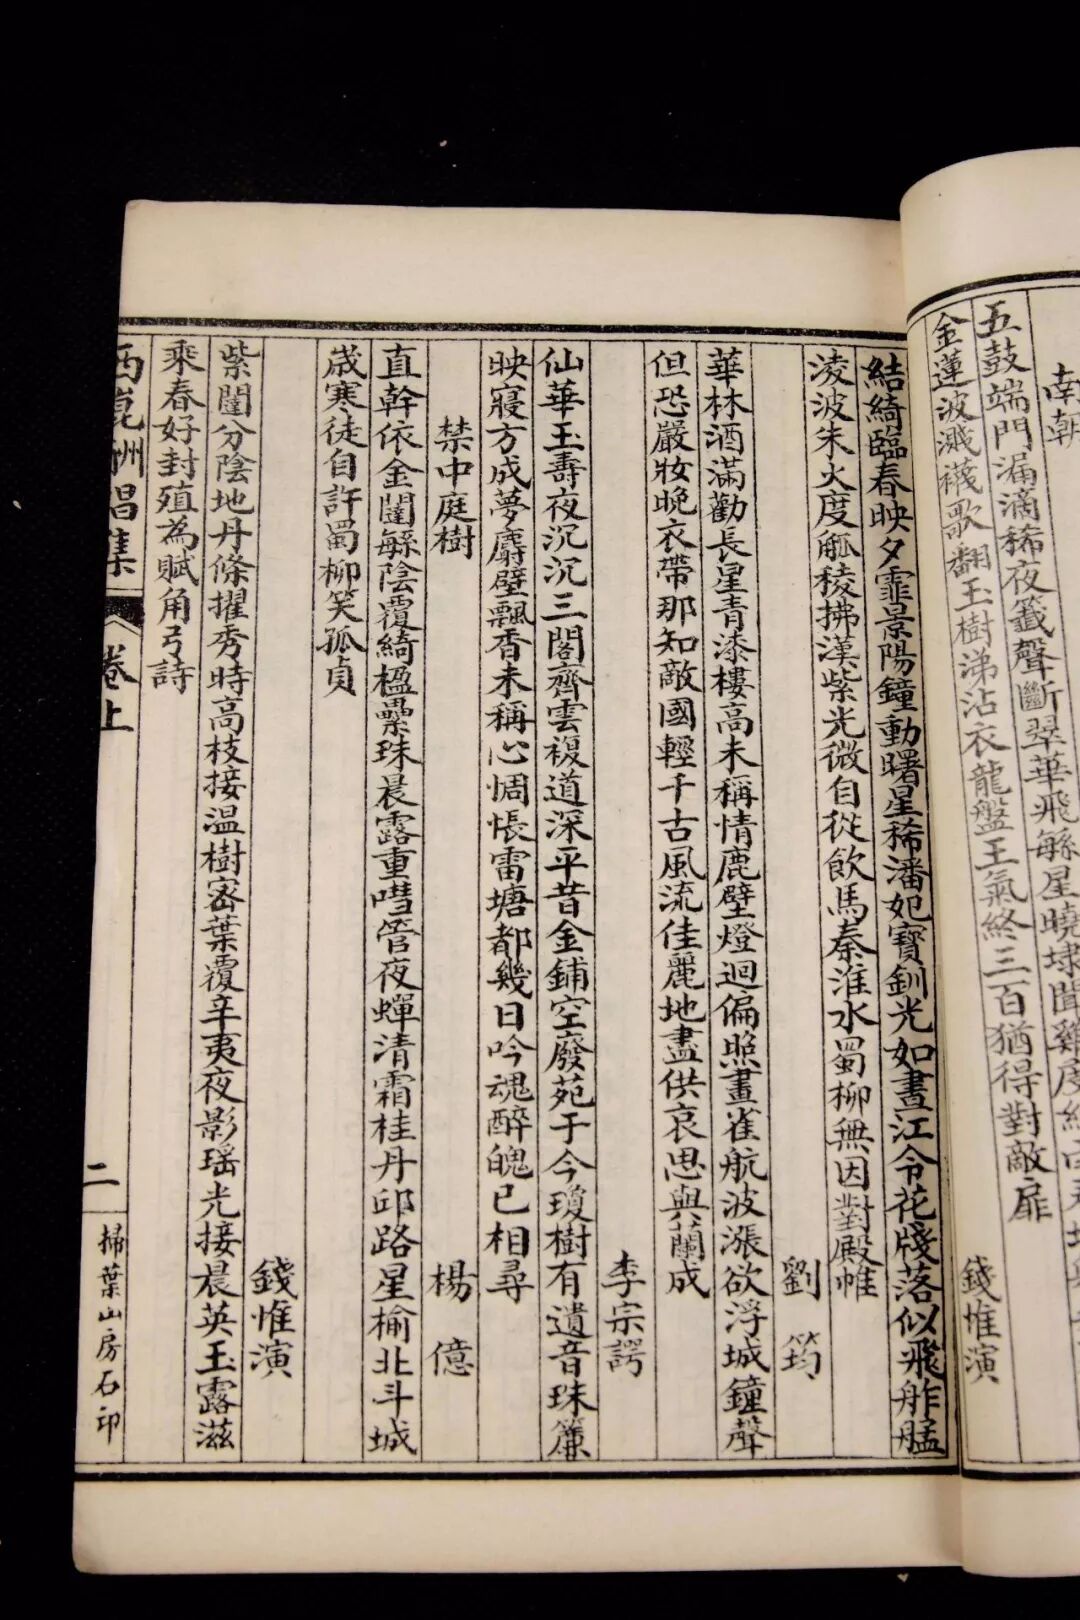 南朝
五鼓端門漏滴稀夜籤聲斷翠華飛繁星曉埭聞雞度
金蓮波濺襪歌翻玉樹涕沾衣龍盤王氣終三百猶得對敵扉
錢惟演
結綺臨春映夕霏景陽鐘動曙星稀潘妃寶釧光如晝江令花牋落似飛舴艋
淩波朱火度觚稜拂漢紫光微自從飲馬秦淮水蜀柳無因對殿帷
劉筠
華林酒滿勸長星青漆樓高未稱情麝壁燈迴偏照晝雀航波漲欲浮城鐘聲
但恐嚴妝晚衣帶那知敵國輕千古風流佳麗地盡供哀思與蘭成
李宗諤
仙華玉壽夜沉沉三閣齊雲複道深平昔金鋪空廢苑于今瓊樹有遺音珠簾
映寢方成夢麝壁飄香未稱心惆悵雷塘都幾日吟魂醉魄已相尋
禁中庭樹
楊億
直幹依金闥繁陰覆綺楹纍珠晨露重嘒管夜蟬清霜桂丹邱路星榆北斗城
歲寒徒自許蜀柳笑孤貞
錢惟演
紫闥分陰地丹條擢秀時高枝接溫樹密葉覆辛夷夜影瑤光接晨英玉露滋
乘春好封殖為賦角弓詩
西崑酬唱集
卷上
二
掃葉山房石印